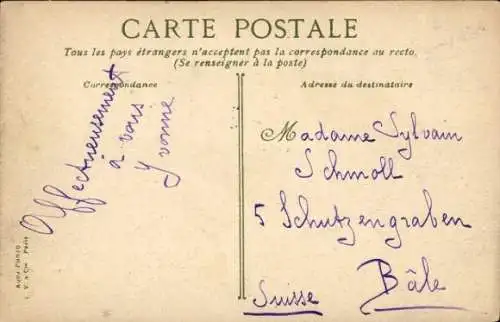 CARTE POSTALE
Tous les pays étrangers n'acceptent pas la correspondance au recto.
(Se renseigner à la poste)
Correspondance
Adresse du destinataire
Affectueusement
à vous
Yvonne
Madame Sylvain
Schmoll
5 Schutzengraben
Bâle
Suisse